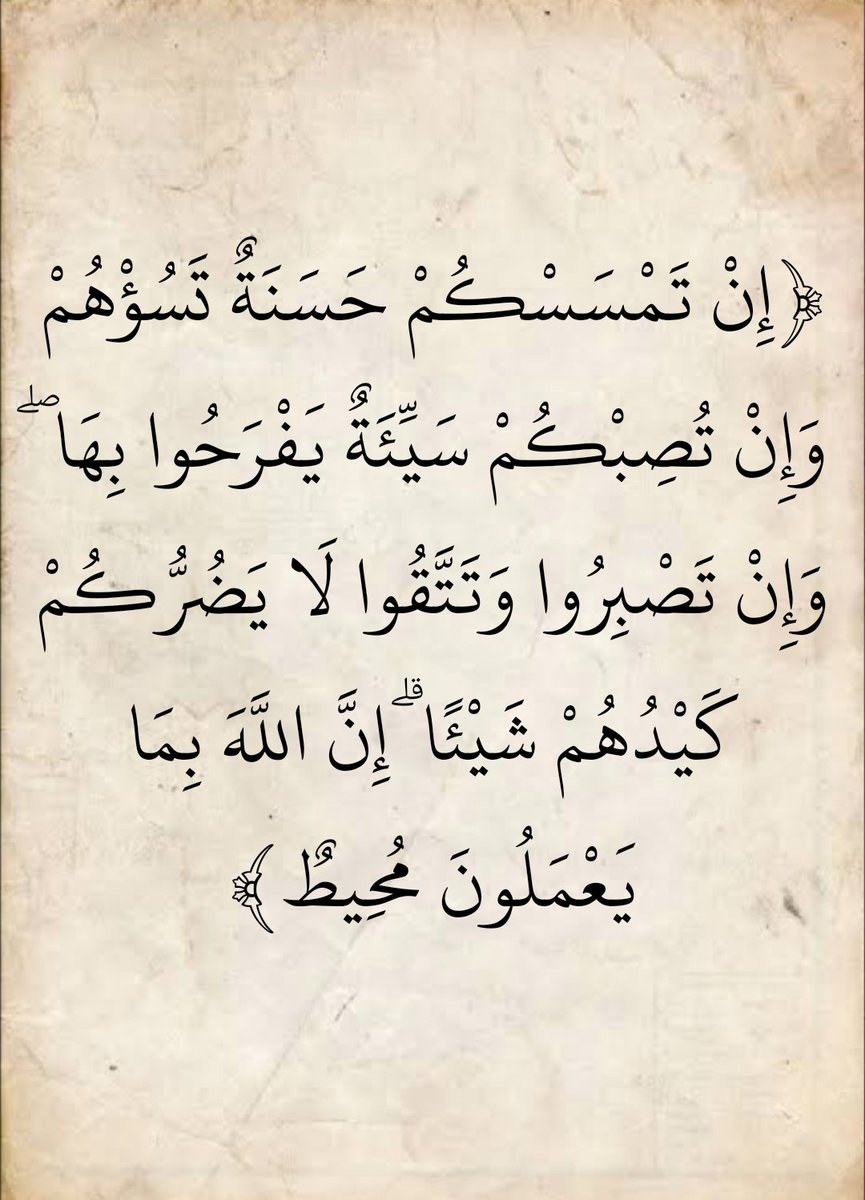 ﴿إِنْ تَمْسَسْكُمْ حَسَنَةٌ تَسُؤْهُمْ
وَإِنْ تُصِبْكُمْ سَيِّئَةٌ يَفْرَحُوا بِهَا ۖ
وَإِنْ تَصْبِرُوا وَتَتَّقُوا لَا يَضُرُّكُمْ
كَيْدُهُمْ شَيْئًا ۗ إِنَّ اللَّهَ بِمَا
يَعْمَلُونَ مُحِيطٌ﴾